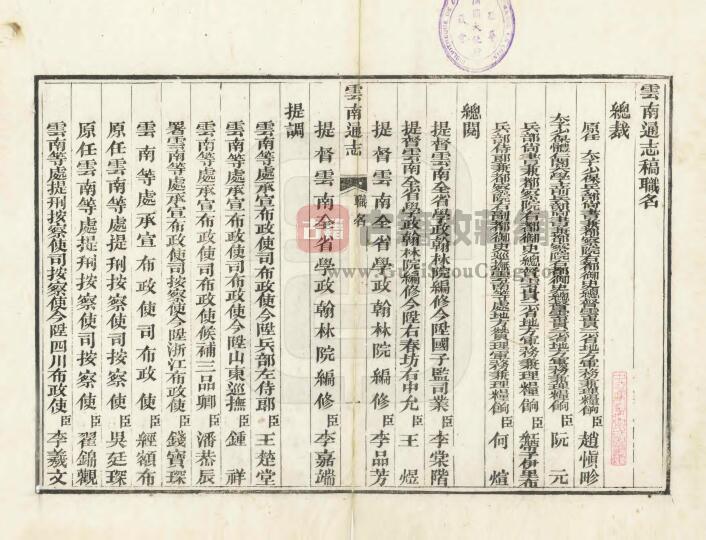 雲南通志稿職名
總裁
原任太子少保兵部尚書兼都察院右都御史總督雲貴二省地方軍務兼理糧餉臣趙慎畛
太子少保體仁閣大學士前兵部尚書兼都察院右都御史總督雲貴二省地方軍務兼理糧餉臣阮元
兵部尚書兼都察院右都御史總督雲貴二省地方軍務兼理糧餉臣覺羅伊里布
兵部侍郎兼都察院右副都御史巡撫雲南等處地方贊理軍務兼理糧餉臣何煊
總閱
提督雲南全省學政翰林院編修今陞國子監司業臣李棠階
提督雲南全省學政翰林院編修今陞右春坊右中允臣王煜
提督雲南全省學政翰林院編修臣李品芳
雲南通志 職名
提督雲南全省學政翰林院編修臣李嘉端
提調
雲南等處承宣布政使司布政使今陞兵部左侍郎臣王楚堂
雲南等處承宣布政使司布政使今陞山東巡撫臣鍾祥
雲南等處承宣布政使司布政使候補三品卿臣潘恭辰
署雲南等處承宣布政使司按察使今陞浙江布政使臣錢寶琛
雲南等處承宣布政使司布政使臣經額布
原任雲南等處提刑按察使司按察使臣吳廷琛
原任雲南等處提刑按察使司按察使臣翟錦觀
雲南等處提刑按察使司按察使今陞四川布政使臣李羲文
古籍收藏網
www.GuJiShouCang.com